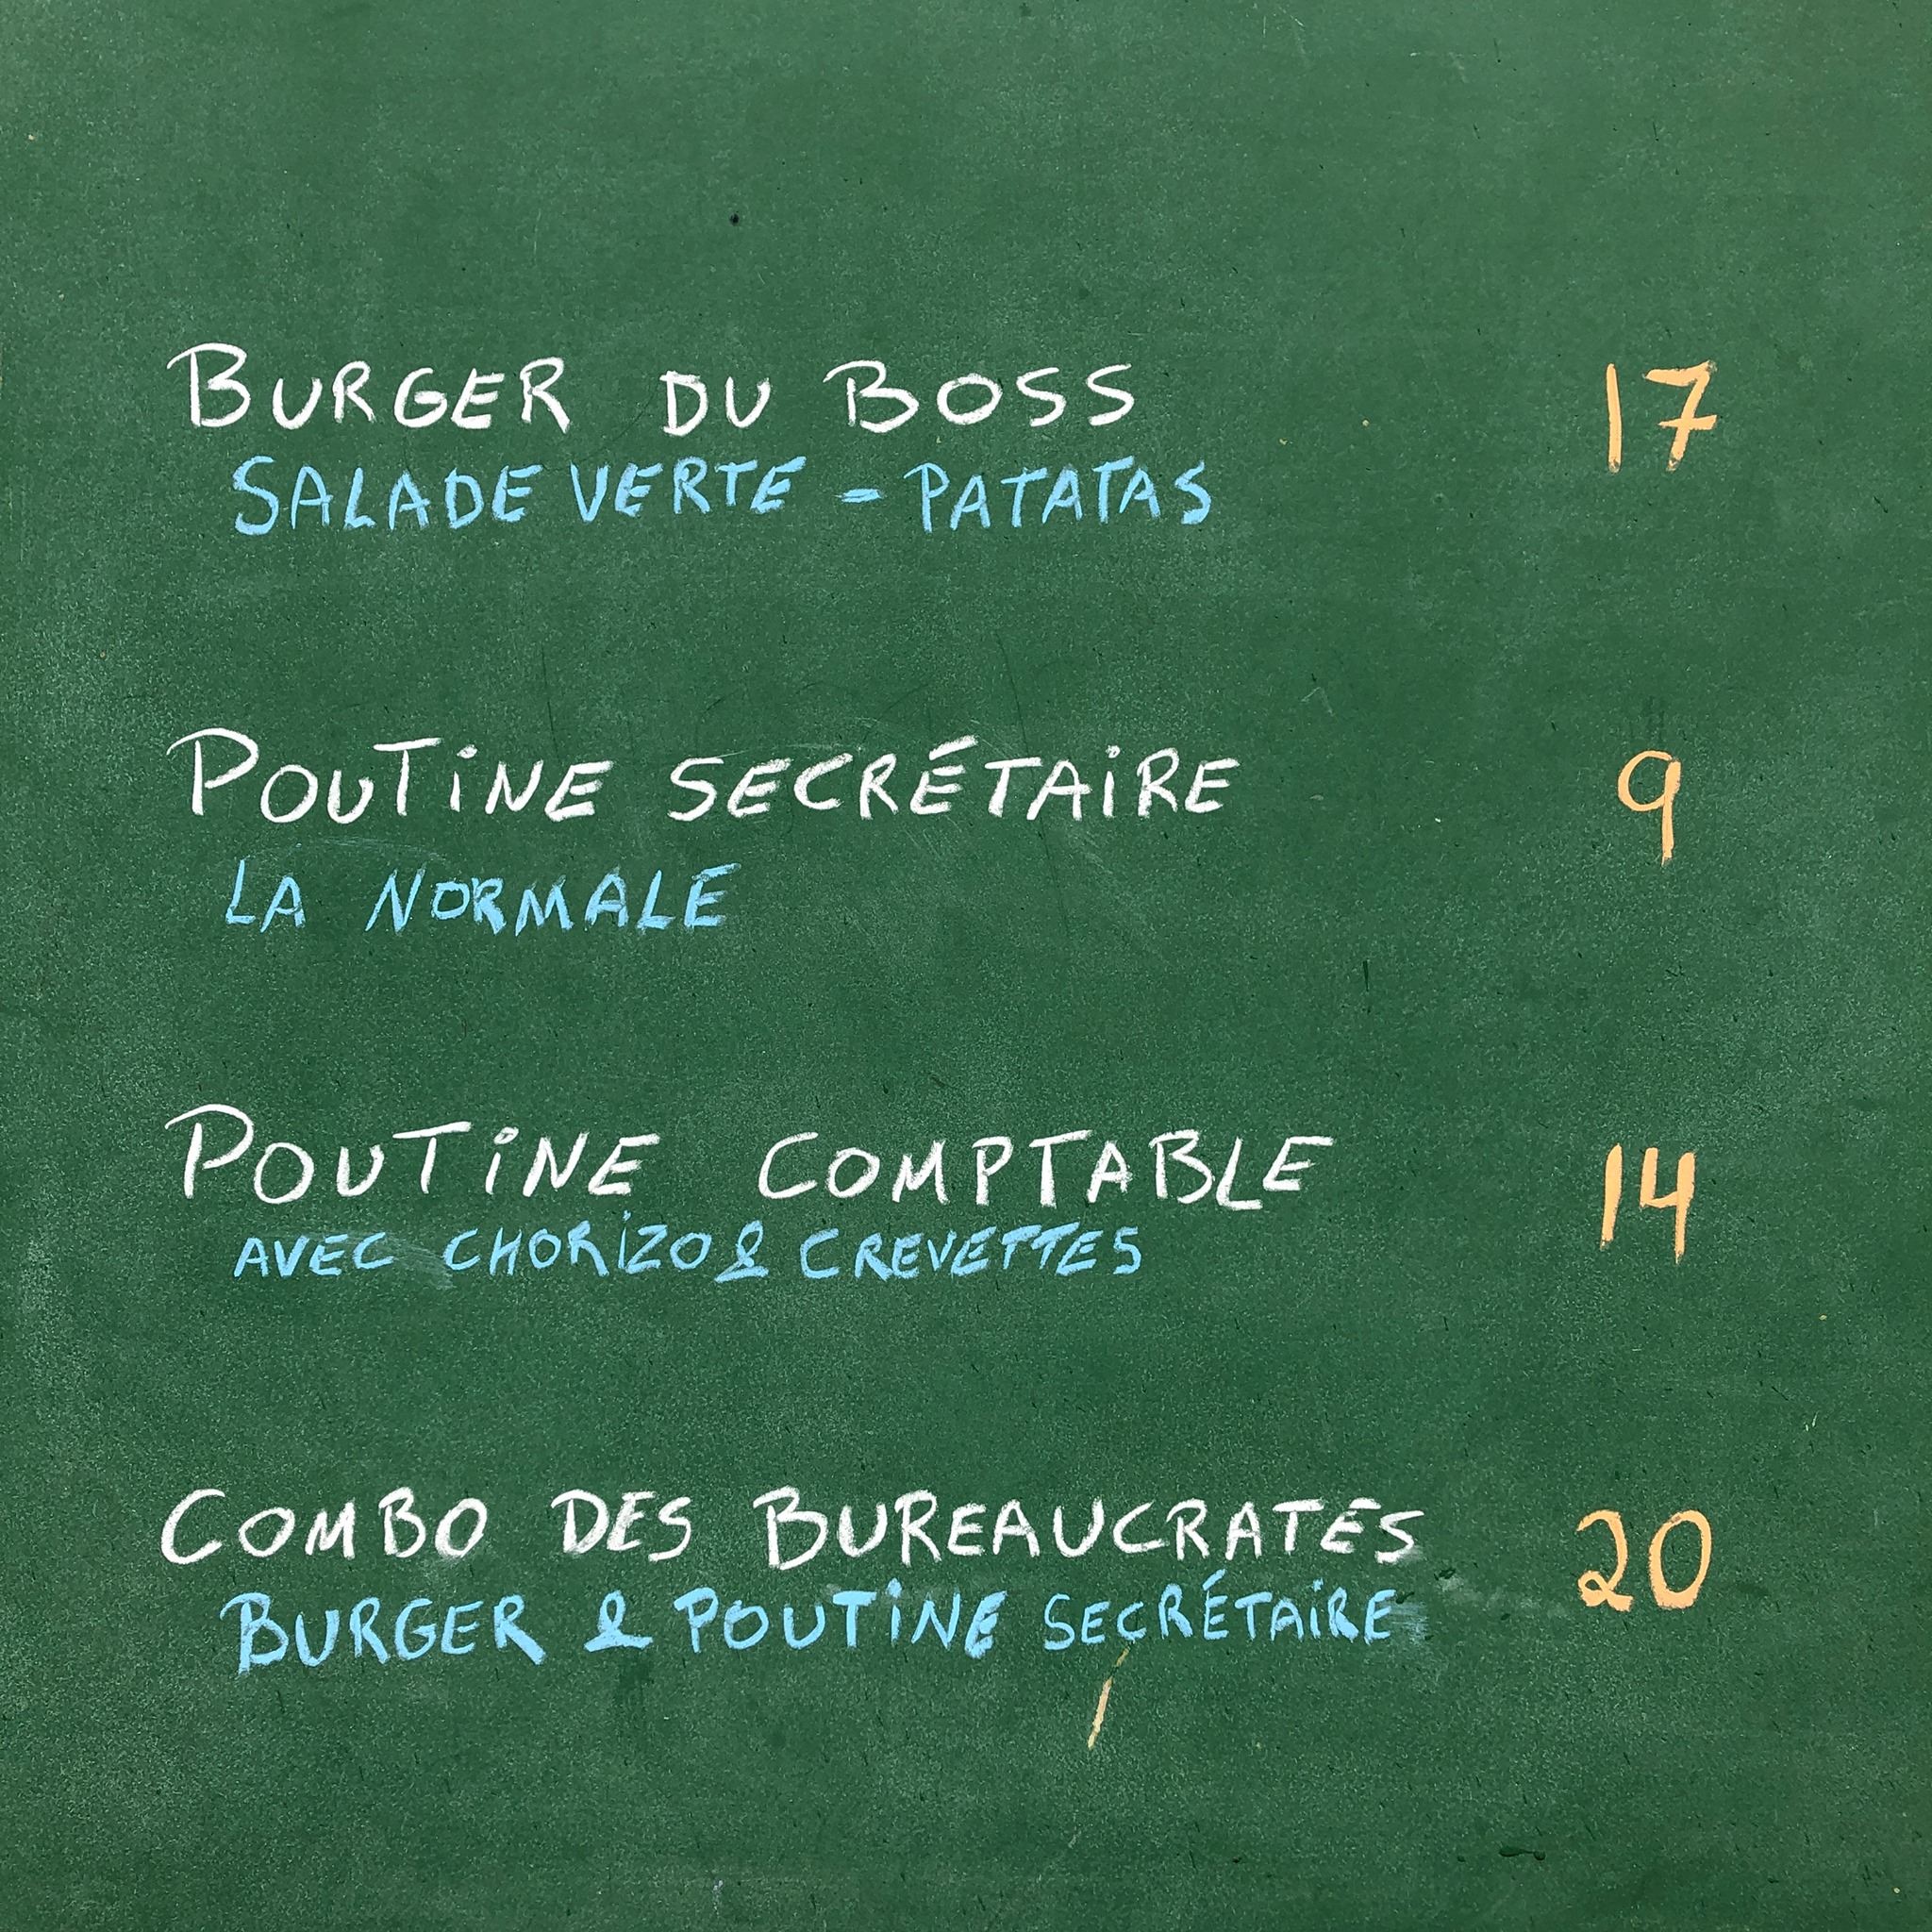 BURGER DU BOSS 17
SALADE VERTE - PATATAS
POUTINE SECRÉTAIRE 9
LA NORMALE
POUTINE COMPTABLE 14
AVEC CHORIZO & CREVETTES
COMBO DES BUREAUCRATES 20
BURGER & POUTINE SECRÉTAIRE